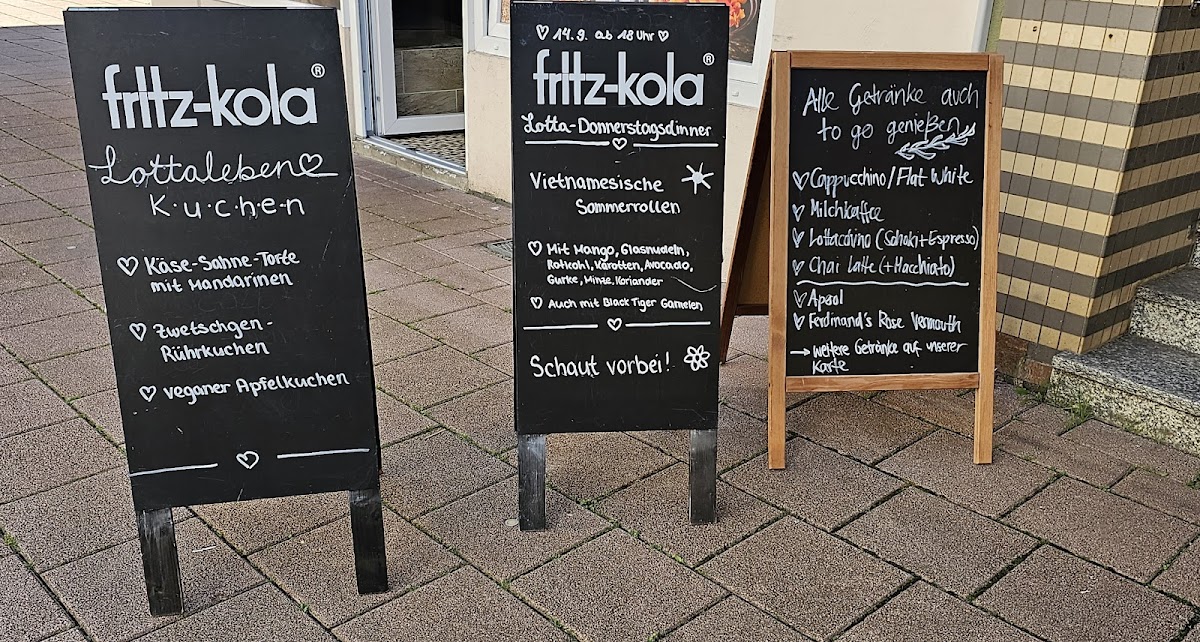 fritz-kola®
Lottaleben
K·u·c·h·e·n
Käse-Sahne-Torte
mit Mandarinen
Zwetschgen-
Rührkuchen
veganer Apfelkuchen
14.9. ab 18 Uhr
fritz-kola®
Lotta-Donnerstagsdinner
Vietnamesische
Sommerrollen
Mit Mango, Glasnudeln,
Rotkohl, Karotten, Avocado,
Gurke, Minze, Koriander
Auch mit Black Tiger Garnelen
Schaut vorbei!
Alle Getränke auch
to go genießen
Cappucchino/Flat White
Milchkaffee
Lottacchino (Schoki+Espresso)
Chai Latte (+Macchiato)
Apsol
Ferdinand's Rose Vermouth
→ weitere Getränke auf unserer
Karte